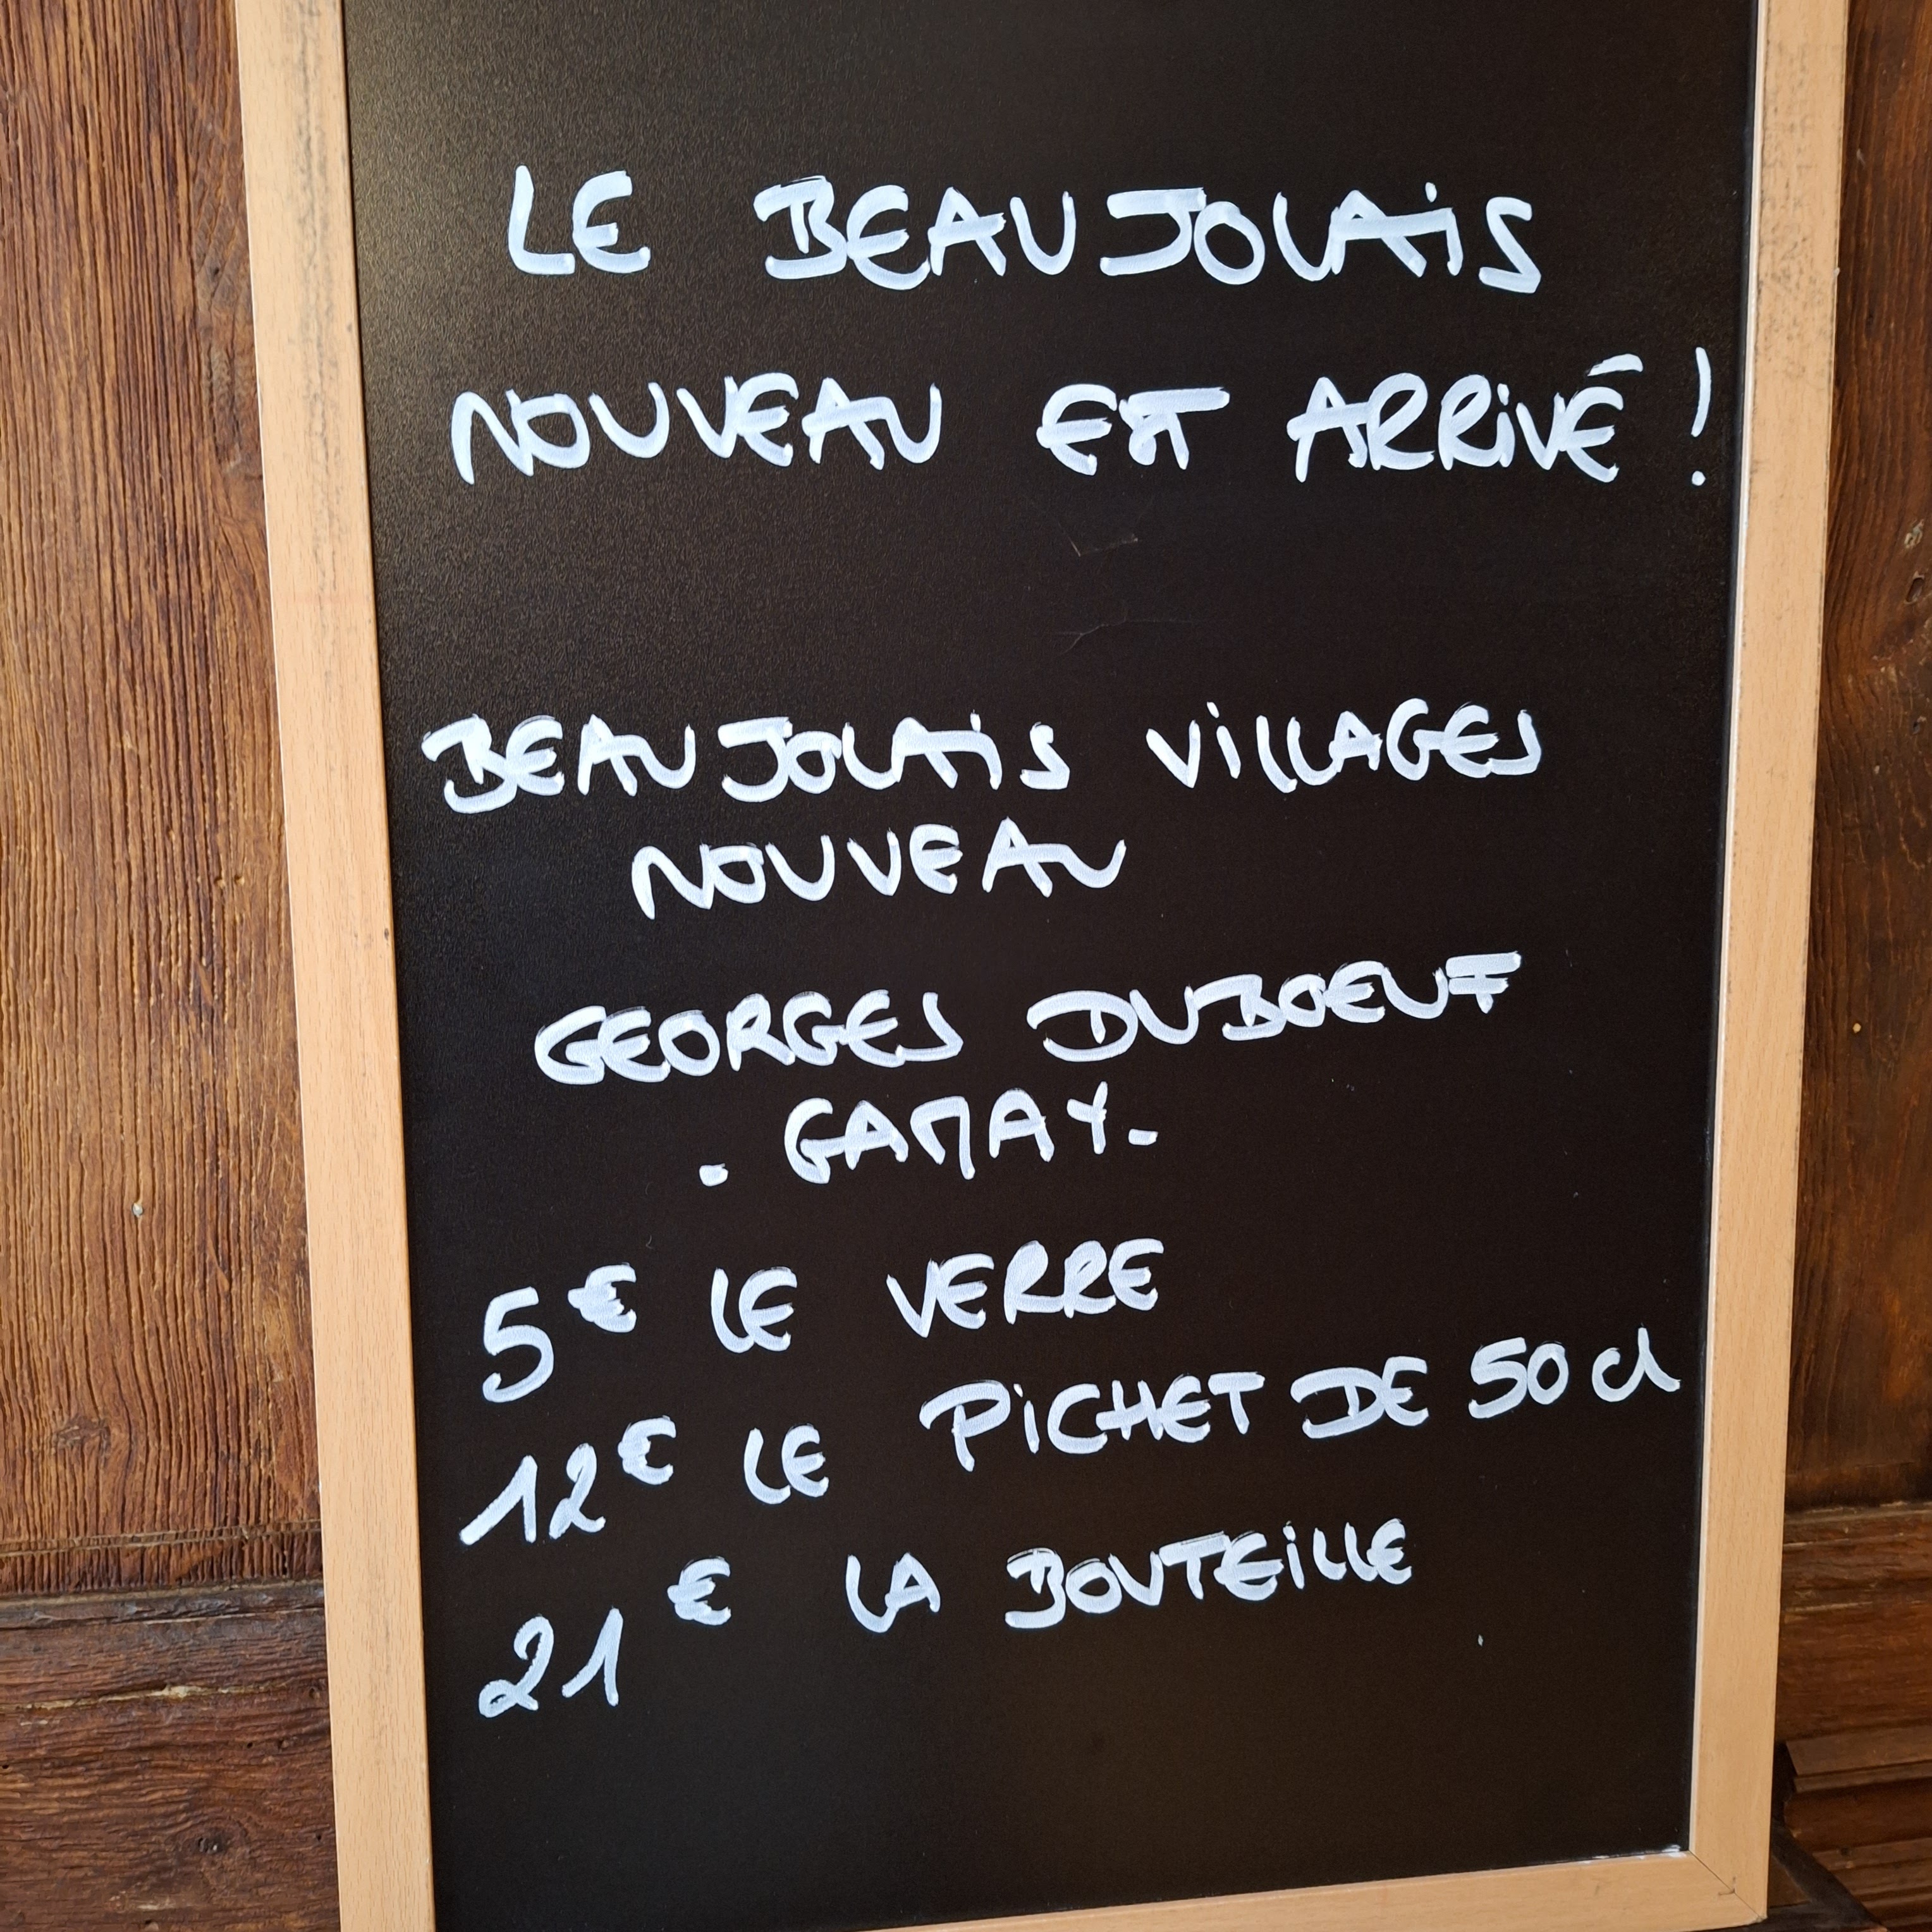 LE BEAUJOLAIS
NOUVEAU EST ARRIVÉ !
BEAUJOLAIS VILLAGES
NOUVEAU
GEORGES DUBOEUF
- GAMAY -
5€ LE VERRE
12€ LE PICHET DE 50 cl
21€ LA BOUTEILLE